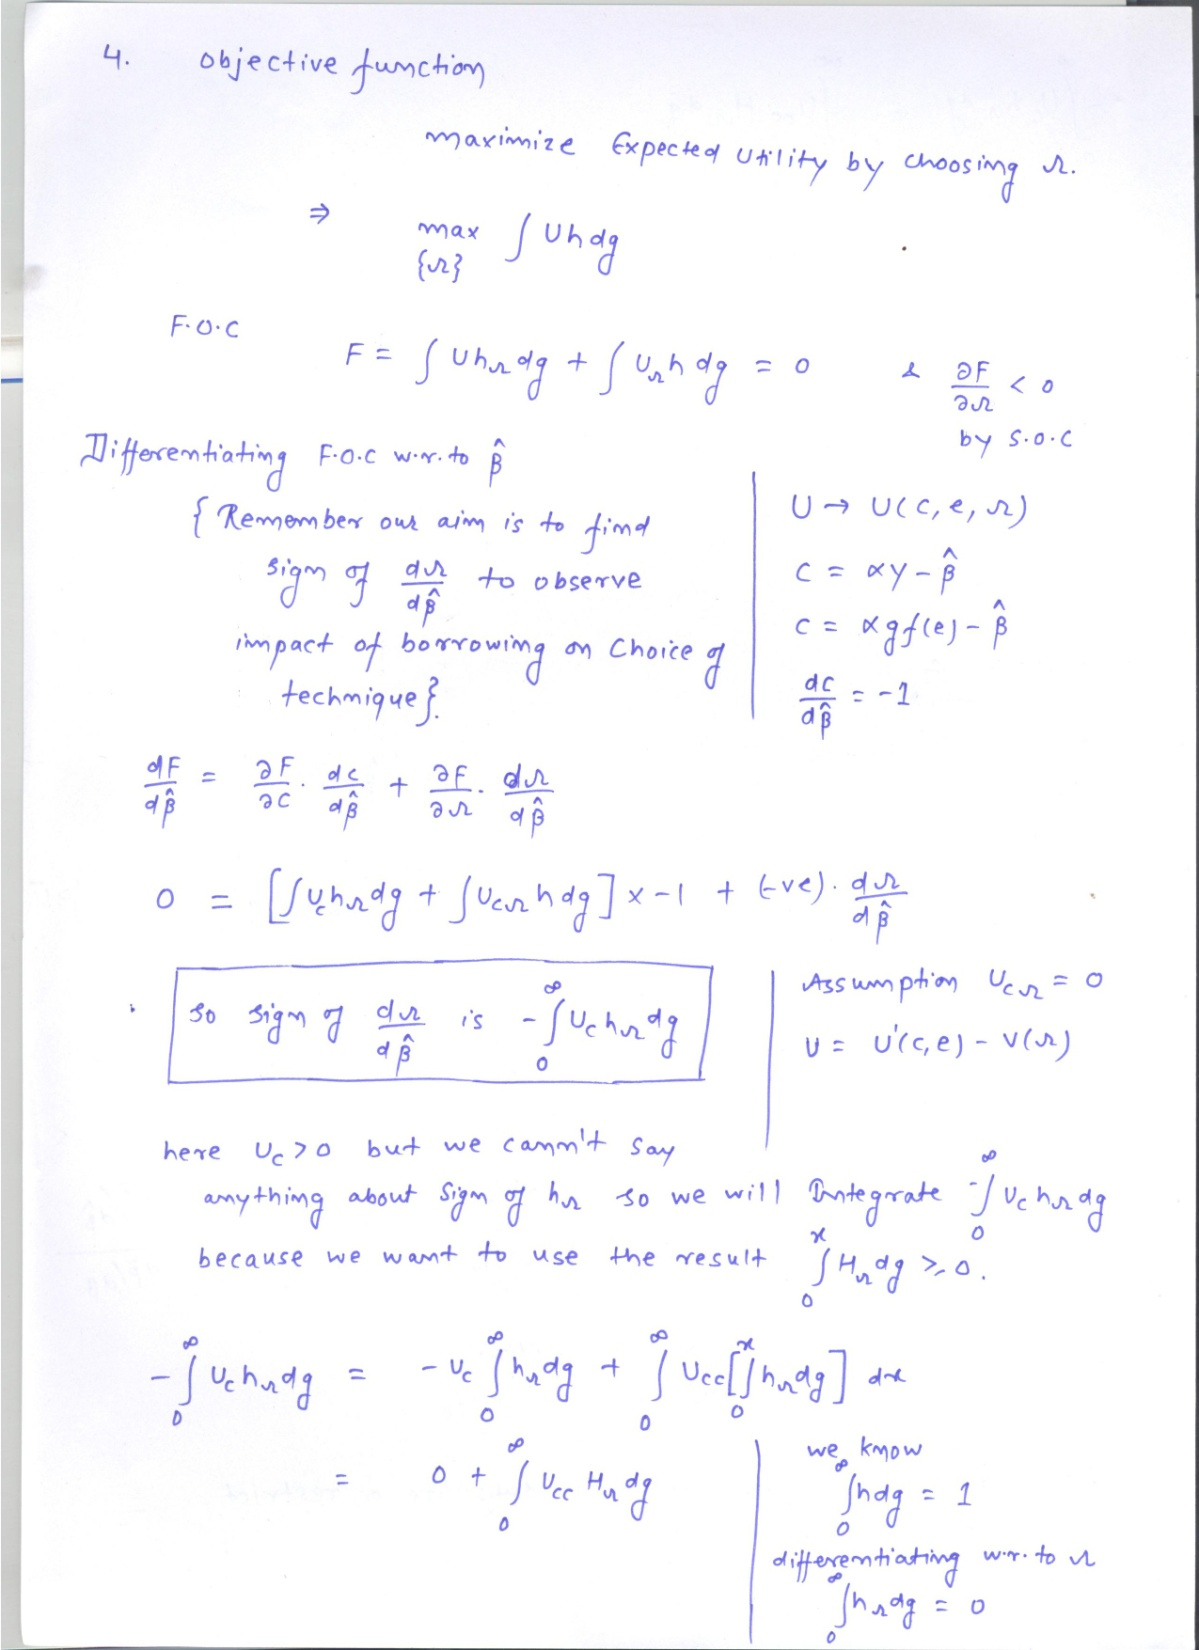 4. objective function
maximize Expected Utility by choosing r.
⇒ max ∫ U h dg
{r}
F.O.C
F = ∫ U h_r dg + ∫ U_r h dg = 0 & ∂F/∂r < 0
by S.O.C
Differentiating F.O.C w.r. to β̂
{ Remember our aim is to find
sign of dr/dβ̂ to observe
impact of borrowing on Choice of
technique}.
U → U(c, e, r)
C = αy - β̂
C = αgf(e) - β̂
dc/dβ̂ = -1
dF/dβ̂ = ∂F/∂C . dc/dβ̂ + ∂F/∂r . dr/dβ̂
0 = [∫U_c h_r dg + ∫U_cr h dg] x -1 + (-ve). dr/dβ̂
so sign of dr/dβ̂ is - ∫_0^∞ U_c h_r dg
Assumption U_cr = 0
U = U'(c,e) - V(r)
here U_c > 0 but we cann't say
anything about sign of h_r so we will Integrate -∫_0^∞ U_c h_r dg
because we want to use the result ∫_0^x H_r dg ≥ 0.
-∫_0^∞ U_c h_r dg = - U_c ∫_0^∞ h_r dg + ∫_0^∞ U_cc [∫_0^x h_r dg] dx
= 0 + ∫_0^∞ U_cc H_r dg
we know
∫_0^∞ h dg = 1
differentiating w.r. to r
∫_0^∞ h_r dg = 0